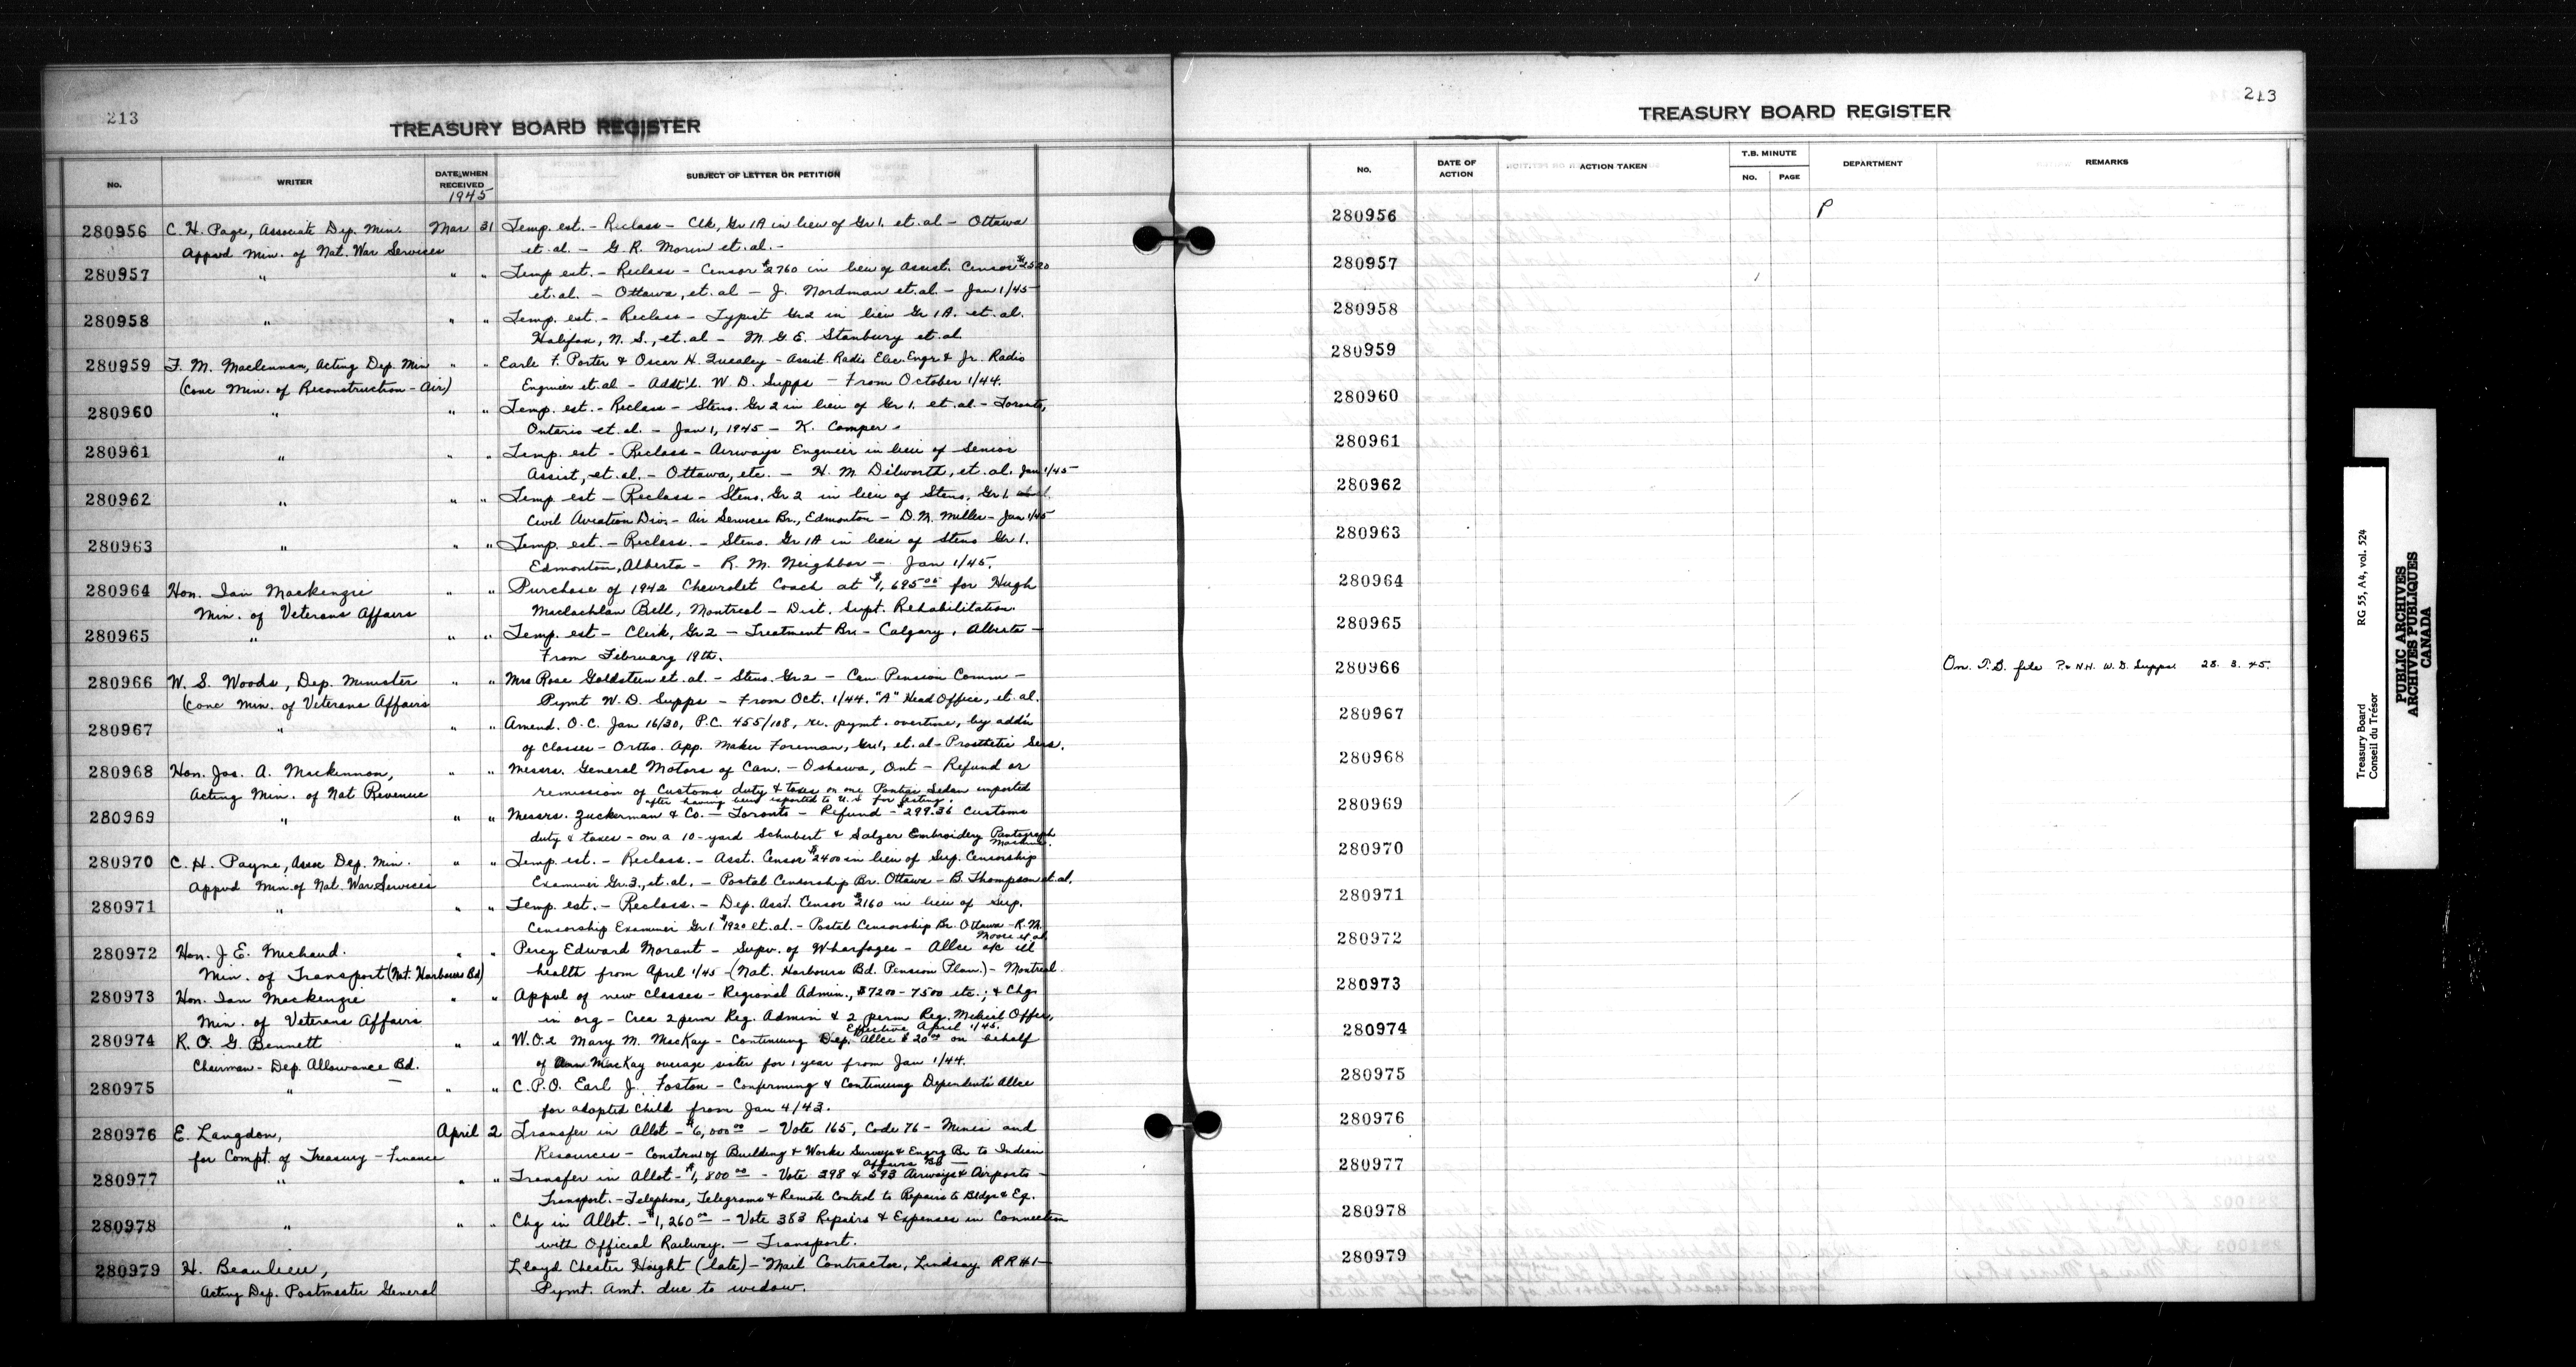 213
TREASURY BOARD REGISTER
No.
WRITER
DATE WHEN RECEIVED
1945
SUBJECT OF LETTER OR PETITION
280956 C. H. Page, Associate Dep. Min. Mar 31 Temp. est. - Reclass - Clk, Gr 1A in lieu of Gr 1. et. al - Ottawa
Appvd Min. of Nat. War Services et. al. - G. R. Morin et. al. -
280957 " " " Temp est. - Reclass - Censor $2760 in lieu of Assist. Censor $2520
et. al. - Ottawa, et. al - J. Nordman et. al. - Jan 1/45
280958 " " " Temp. est. - Reclass - Typist Gr 2 in lieu Gr 1A. et. al.
Halifax, N. S., et. al - M. G. E. Stanbury et. al
280959 F. M. Maclennan, Acting Dep. Min " " Earle F. Porter & Oscar H. Quealey - Assist. Radio Elec. Engr & Jr. Radio
(Conc Min. of Reconstruction - Air) Engineer et. al - Addt'l. W. D. Supps - From October 1/44.
280960 " " " Temp. est. - Reclass - Steno. Gr 2 in lieu of Gr 1. et. al. - Toronto,
Ontario et. al. - Jan 1, 1945 - K. Comper -
280961 " " " Temp. est - Reclass - Airways Engineer in lieu of Senior
Assist, et. al. - Ottawa, etc. - H. M. Dilworth, et. al. Jan 1/45 -
280962 " " " Temp est - Reclass - Steno. Gr 2 in lieu of Steno. Gr 1
Civil Aviation Div. - Air Services Br., Edmonton - D. M. Miller - Jan 1/45
280963 " " " Temp. est. - Reclass. - Steno. Gr 1A in lieu of Steno Gr 1.
Edmonton, Alberta - R. M. Neighbor - Jan 1/45.
280964 Hon. Ian Mackenzie " " Purchase of 1942 Chevrolet Coach at $1,695.00 for Hugh
Min. of Veterans Affairs Maclachlan Bell, Montreal - Dist. Supt. Rehabilitation.
280965 " " " Temp. est - Clerk, Gr 2 - Treatment Br. - Calgary, Alberta -
From February 19th.
280966 W. S. Woods, Dep. Minister " " Mrs Rose Goldstein et. al. - Steno. Gr 2 - Can. Pension Comm -
(Conc Min. of Veterans Affairs Pymt W. D. Supps - From Oct. 1/44. "A" Head Office, et. al.
280967 " " " Amend. O. C. Jan 16/30, P.C. 455/108, re. pymt. overtime, by add'n
of classes - Ortho. App. Maker Foreman, Gr 1, et. al - Prosthetic Sers.
280968 Hon. Jas. A. Mackinnon, " " Messrs. General Motors of Can. - Oshawa, Ont - Refund or
Acting Min. of Nat Revenue remission of Customs duty & taxes on one Pontiac Sedan imported
after having been exported to U. S for testing.
280969 " " " Messrs. Zuckerman & Co. - Toronto - Refund - $299.36 Customs
duty & taxes - on a 10-yard Schubert & Salzer Embroidery Pantograph
Machine.
280970 C. H. Payne, Assoc Dep. Min. " " Temp. est. - Reclass. - Asst. Censor $2400 in lieu of Sup. Censorship
Appvd Min. of Nat. War Services Examiner Gr. 3., et. al. - Postal Censorship Br. Ottawa - B. Thompson et. al.
280971 " " " Temp. est. - Reclass. - Dep. Asst. Censor $2160 in lieu of Sup.
Censorship Examiner Gr 1 $1920 et. al. - Postal Censorship Br. Ottawa - R. M.
Moore et al
280972 Hon. J E. Michaud. " " Percy Edward Morant - Supv. of Wharfages - Allce a/c ill
Min. of Transport (Nat. Harbours Bd) health from April 1/45 - (Nat. Harbours Bd. Pension Plan.) - Montreal.
280973 Hon. Ian Mackenzie " " Appvl of new classes - Regional Admin., $7200 - 7500 etc.; & Chgs
Min. of Veterans Affairs in org - Crea 2 perm Reg. Admin & 2 perm Reg. Medical Offcr,
Effective April 1/45.
280974 R. O. G. Bennett " " W.O.2 Mary M. MacKay - Continuing Dep. Allce $20.00 on behalf
Chairman - Dep. Allowance Bd. of Ann MacKay overage sister for 1 year from Jan 1/44.
280975 " " " C. P. O. Earl J. Foston - Confirming & Continuing Dependents' Allce
for adopted child from Jan 4/43.
280976 E. Langdon, April 2 Transfer in Allot - $6,000.00 - Vote 165, Code 76 - Mines and
for Compt. of Treasury - Finance Resources - Constrn of Building & Works Surveys & Engrg Br to Indian
Affairs Br -
280977 " " " Transfer in Allot - $1,800.00 - Vote 398 & 593 Airways & Airports -
Transport. - Telephone, Telegrams & Remote Control to Repairs to Bldgs & Eq.
280978 " " " Chg in Allot. - $1,260.00 - Vote 383 Repairs & Expenses in Connection
with Official Railway. - Transport.
280979 H. Beaulieu, Lloyd Chester Haight (late) - Mail Contractor, Lindsay RR #1 -
Acting Dep. Postmaster General Pymt. Amt. due to widow.
213
TREASURY BOARD REGISTER
No.
DATE OF ACTION
ACTION TAKEN
T.B. MINUTE
No.
PAGE
DEPARTMENT
REMARKS
280956 P
280957
280958
280959
280960
280961
280962
280963
280964
280965
280966 On T.B. file P. & N.H. W. D. Supps 28. 3. 45.
280967
280968
280969
280970
280971
280972
280973
280974
280975
280976
280977
280978
280979
Treasury Board RG 55, A4, vol. 524
Conseil du Trésor
PUBLIC ARCHIVES
ARCHIVES PUBLIQUES
CANADA